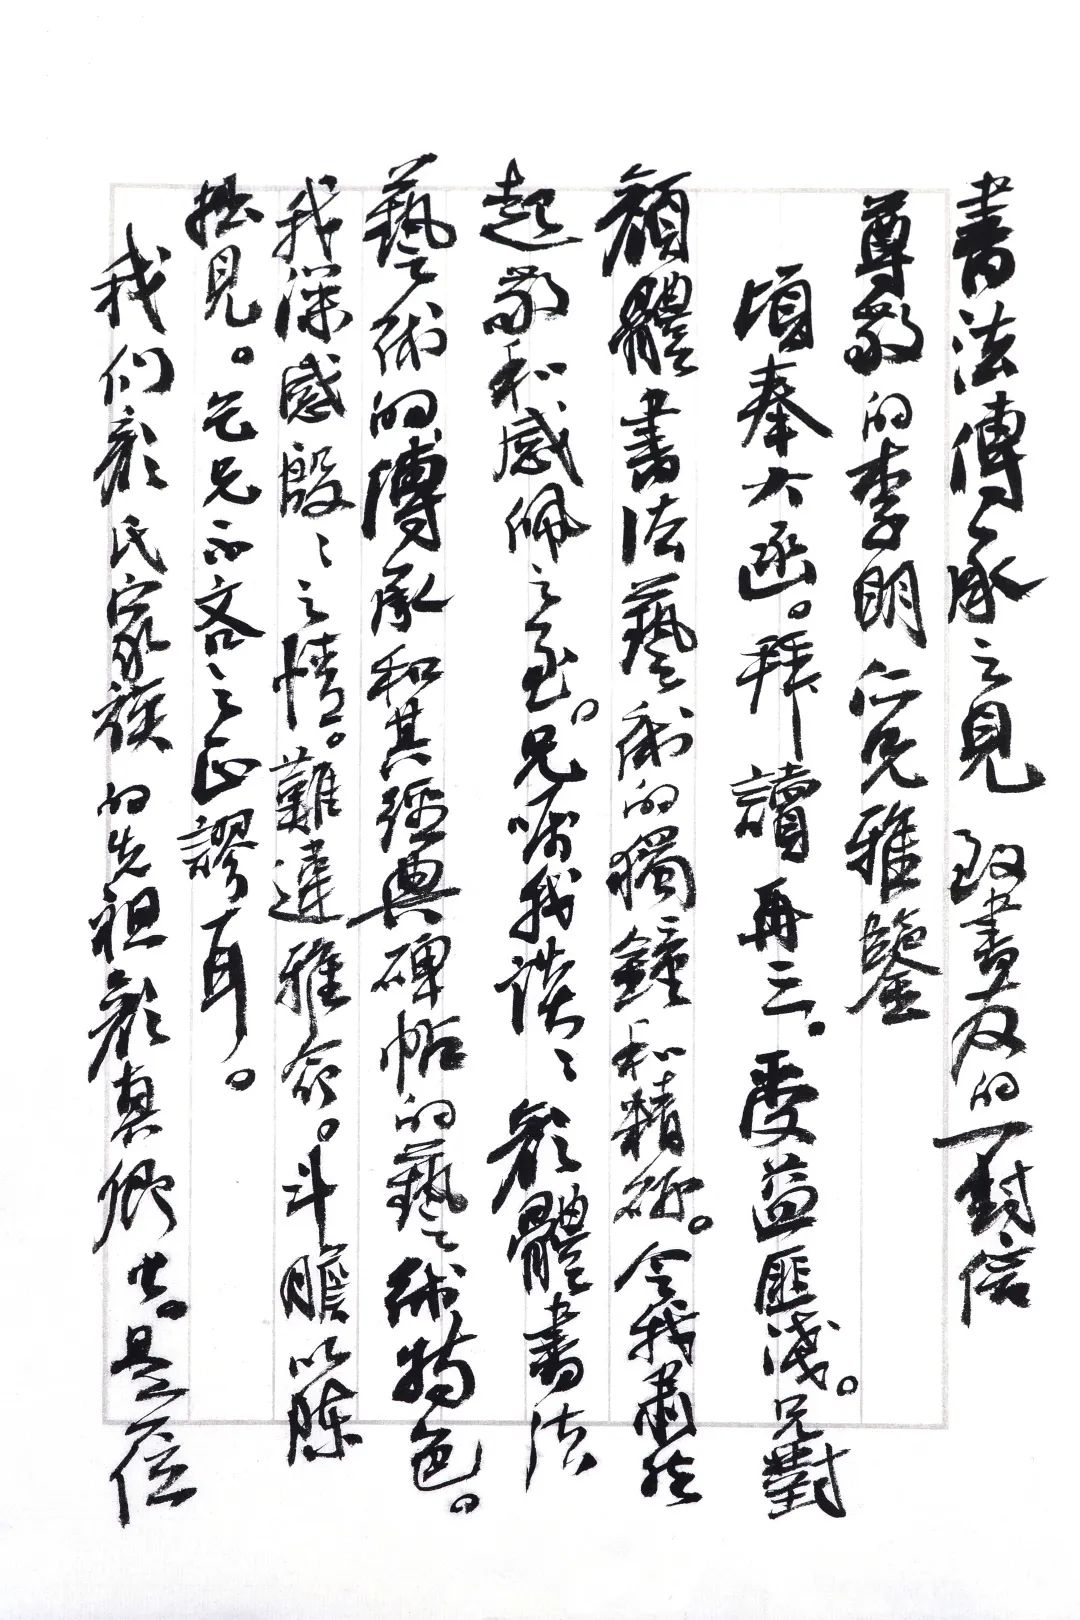 書法傳承之見 致書友的一封信
尊敬的李明仁兄雅鑒
頃奉大函。拜讀再三。受益匪淺。兄對
顏體書法藝術的獨鐘和精研。令我肅然
起敬和感佩之至。兄囑我談談顏體書法
藝術的傳承和其經典碑帖的藝術特色。
我深感殷殷之情。難違雅命。斗膽以陳
拙見。乞兄不吝之正謬耳。
我们顏氏家族的先祖顏真卿世。是位